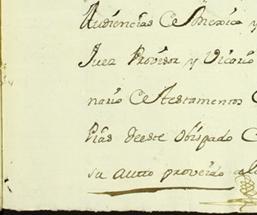 Audiencias de Mexico y
Juez Provisor y Vicario
nario de Testamentos
Pias deeste obispado
su auto proveido a